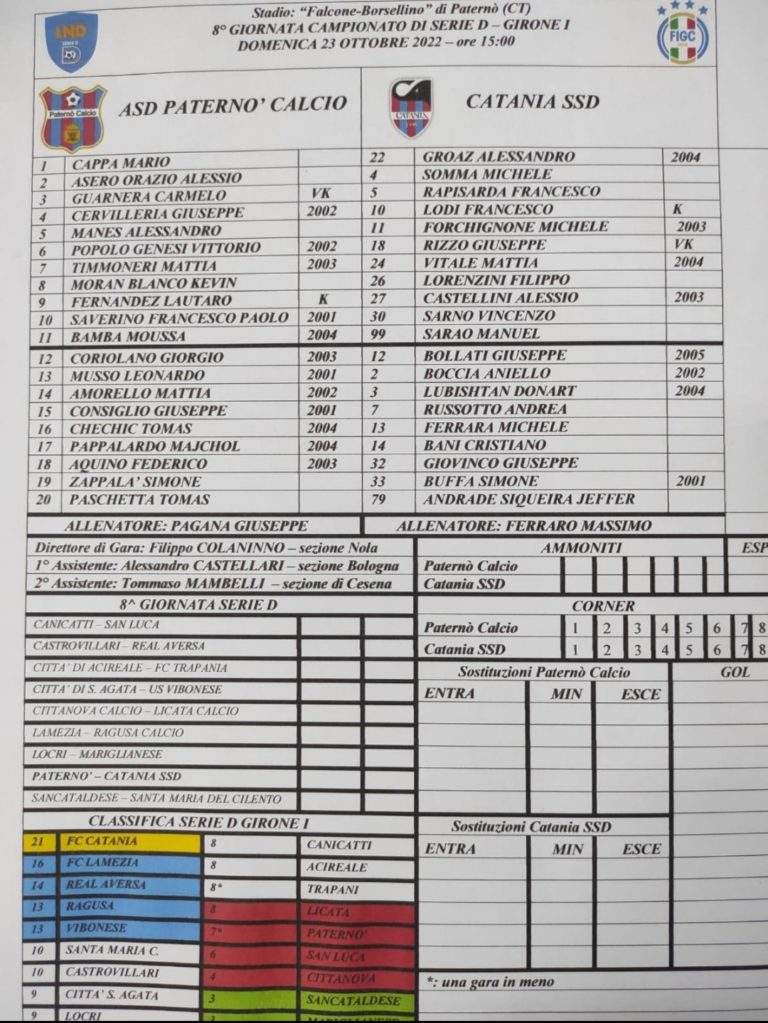 Stadio: “Falcone-Borsellino” di Paternò (CT)
8° GIORNATA CAMPIONATO DI SERIE D – GIRONE I
DOMENICA 23 OTTOBRE 2022 – ore 15:00
LND
SERIE D
FIGC
ASD PATERNO’ CALCIO
CATANIA SSD
Paternò Calcio
CATANIA
1 CAPPA MARIO 22 GROAZ ALESSANDRO 2004
2 ASERO ORAZIO ALESSIO 4 SOMMA MICHELE
3 GUARNERA CARMELO VK 5 RAPISARDA FRANCESCO
4 CERVILLERIA GIUSEPPE 2002 10 LODI FRANCESCO K
5 MANES ALESSANDRO 11 FORCHIGNONE MICHELE 2003
6 POPOLO GENESI VITTORIO 2002 18 RIZZO GIUSEPPE VK
7 TIMMONERI MATTIA 2003 24 VITALE MATTIA 2004
8 MORAN BLANCO KEVIN 26 LORENZINI FILIPPO
9 FERNANDEZ LAUTARO K 27 CASTELLINI ALESSIO 2003
10 SAVERINO FRANCESCO PAOLO 2001 30 SARNO VINCENZO
11 BAMBA MOUSSA 2004 99 SARAO MANUEL
12 CORIOLANO GIORGIO 2003 12 BOLLATI GIUSEPPE 2005
13 MUSSO LEONARDO 2001 2 BOCCIA ANIELLO 2002
14 AMORELLO MATTIA 2002 3 LUBISHTAN DONART 2004
15 CONSIGLIO GIUSEPPE 2001 7 RUSSOTTO ANDREA
16 CHECHIC TOMAS 2004 13 FERRARA MICHELE
17 PAPPALARDO MAJCHOL 2004 14 BANI CRISTIANO
18 AQUINO FEDERICO 2003 32 GIOVINCO GIUSEPPE
19 ZAPPALA’ SIMONE 33 BUFFA SIMONE 2001
20 PASCHETTA TOMAS 79 ANDRADE SIQUEIRA JEFFER
ALLENATORE: PAGANA GIUSEPPE ALLENATORE: FERRARO MASSIMO
Direttore di Gara: Filippo COLANINNO – sezione Nola
1° Assistente: Alessandro CASTELLARI – sezione Bologna
2° Assistente: Tommaso MAMBELLI – sezione di Cesena
AMMONITI ESP
Paternò Calcio
Catania SSD
8^ GIORNATA SERIE D
CANICATTI – SAN LUCA
CASTROVILLARI – REAL AVERSA
CITTA’ DI ACIREALE – FC TRAPANI
CITTA’ DI S. AGATA – US VIBONESE
CITTANOVA CALCIO – LICATA CALCIO
LAMEZIA – RAGUSA CALCIO
LOCRI – MARIGLIANESE
PATERNO’ – CATANIA SSD
SANCATALDESE – SANTA MARIA DEL CILENTO
CORNER
Paternò Calcio 1 2 3 4 5 6 7 8
Catania SSD 1 2 3 4 5 6 7 8
Sostituzioni Paternò Calcio GOL
ENTRA MIN ESCE
Sostituzioni Catania SSD
ENTRA MIN ESCE
*: una gara in meno
CLASSIFICA SERIE D GIRONE I
21 FC CATANIA 8 CANICATTI
16 FC LAMEZIA 8 ACIREALE
14 REAL AVERSA 8* TRAPANI
13 RAGUSA 8 LICATA
13 VIBONESE 7* PATERNO’
10 SANTA MARIA C. 6 SAN LUCA
10 CASTROVILLARI 4 CITTANOVA
9 CITTA’ S. AGATA 3 SANCATALDESE
9 LOCRI MARIGLIANESE